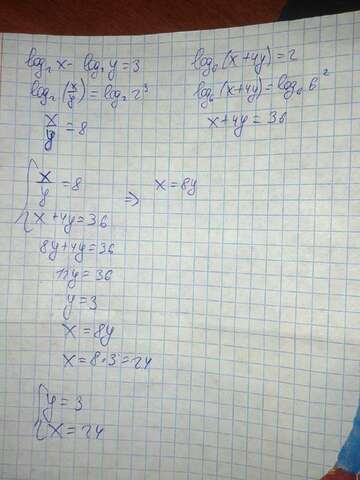 log₂ x - log₂ y = 3
log₂ (x/y) = log₂ 2³
x/y = 8
log₆ (x+4y) = 2
log₆ (x+4y) = log₆ 6²
x+4y = 36
{ x/y = 8 => x = 8y
x+4y = 36
8y+4y = 36
12y = 36
y = 3
x = 8y
x = 8·3 = 24
{ y = 3
x = 24